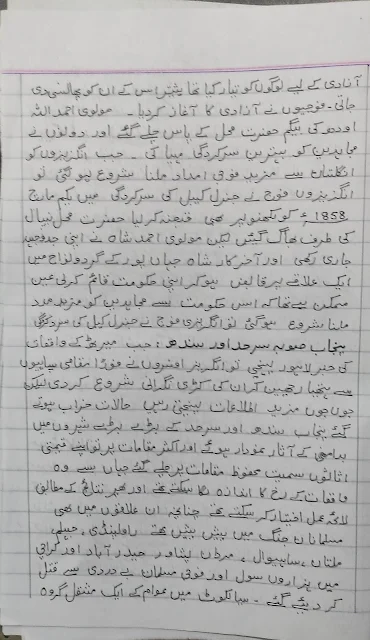 آزادی کے لیے لوگوں کو تیار کیا تھا پیشتر اس کے ان کو پھانسی دی
جاتی۔ فوجیوں نے آزادی کا آغاز کردیا۔ مولوی احمد اللہ
اودھ کی بیگم حضرت محل کے پاس چلے گئے اور دونوں نے
مجاہدین کو بہترین سرکردگی مہیا کی۔ جب انگریزوں کو
انگلستان سے مزید فوجی امداد ملنا شروع ہو گئی تو
انگریزوں فوج نے جنرل کیبل کی سرکردگی میں یکم مارچ
1858ء کو لکھنو پر بھی قبضہ کر لیا حضرت محل نیپال
کی طرف بھاگ گئیں لیکن مولوی احمد شاہ نے اپنی جدوجہد
جاری رکھی اور آخر کار شاہ جہاں پور کے گردونواح میں
ایک علاقے پر قابض ہو کر اپنی حکومت قائم کرلی عین
ممکن ہے تھا کہ اس حکومت سے مجاہدین کو مزید مدد
ملنا شروع ہو گئی تو انگریزی فوج نے جنرل کیبل کی سرکردگی
پنجاب صوبہ سرحد اور سندھ: جب میرٹھ کے واقعات
کی خبر لاہور پہنچی تو انگریز افسروں نے فوراً مقامی سپاہیوں
سے ہتھیار چھین کر ان کی کڑی نگرانی شروع کردی لیکن
جوں جوں مزید اطلاعات پہنچتی رہیں حالات خراب ہوتے
گئے پنجاب سندھ اور سرحد کے بڑے بڑے شہروں میں
بدامنی کے آثار نمودار ہوئے اور اکثر مقامات پر تو اپنے قیمتی
اثاثوں سمیت محفوظ مقامات پر چلے گئے جہاں سے وہ
واقعات کے رخ کا اندازہ لگا سکتے تھے اور پھر نتائج کے مطابق
لائحہ عمل اختیار کر سکتے تھے چنانچہ ان علاقوں میں بھی
مسلمانان جنگ میں پیش پیش تھے راولپنڈی، جہلم
ملتان، ساہیوال، مردان پشاور حیدرآباد اور کراچی
میں ہزاروں سول اور فوجی مسلمان بے دردی سے قتل
کر دیئے گئے۔ سیالکوٹ میں عوام کے ایک مشتعل گروہ